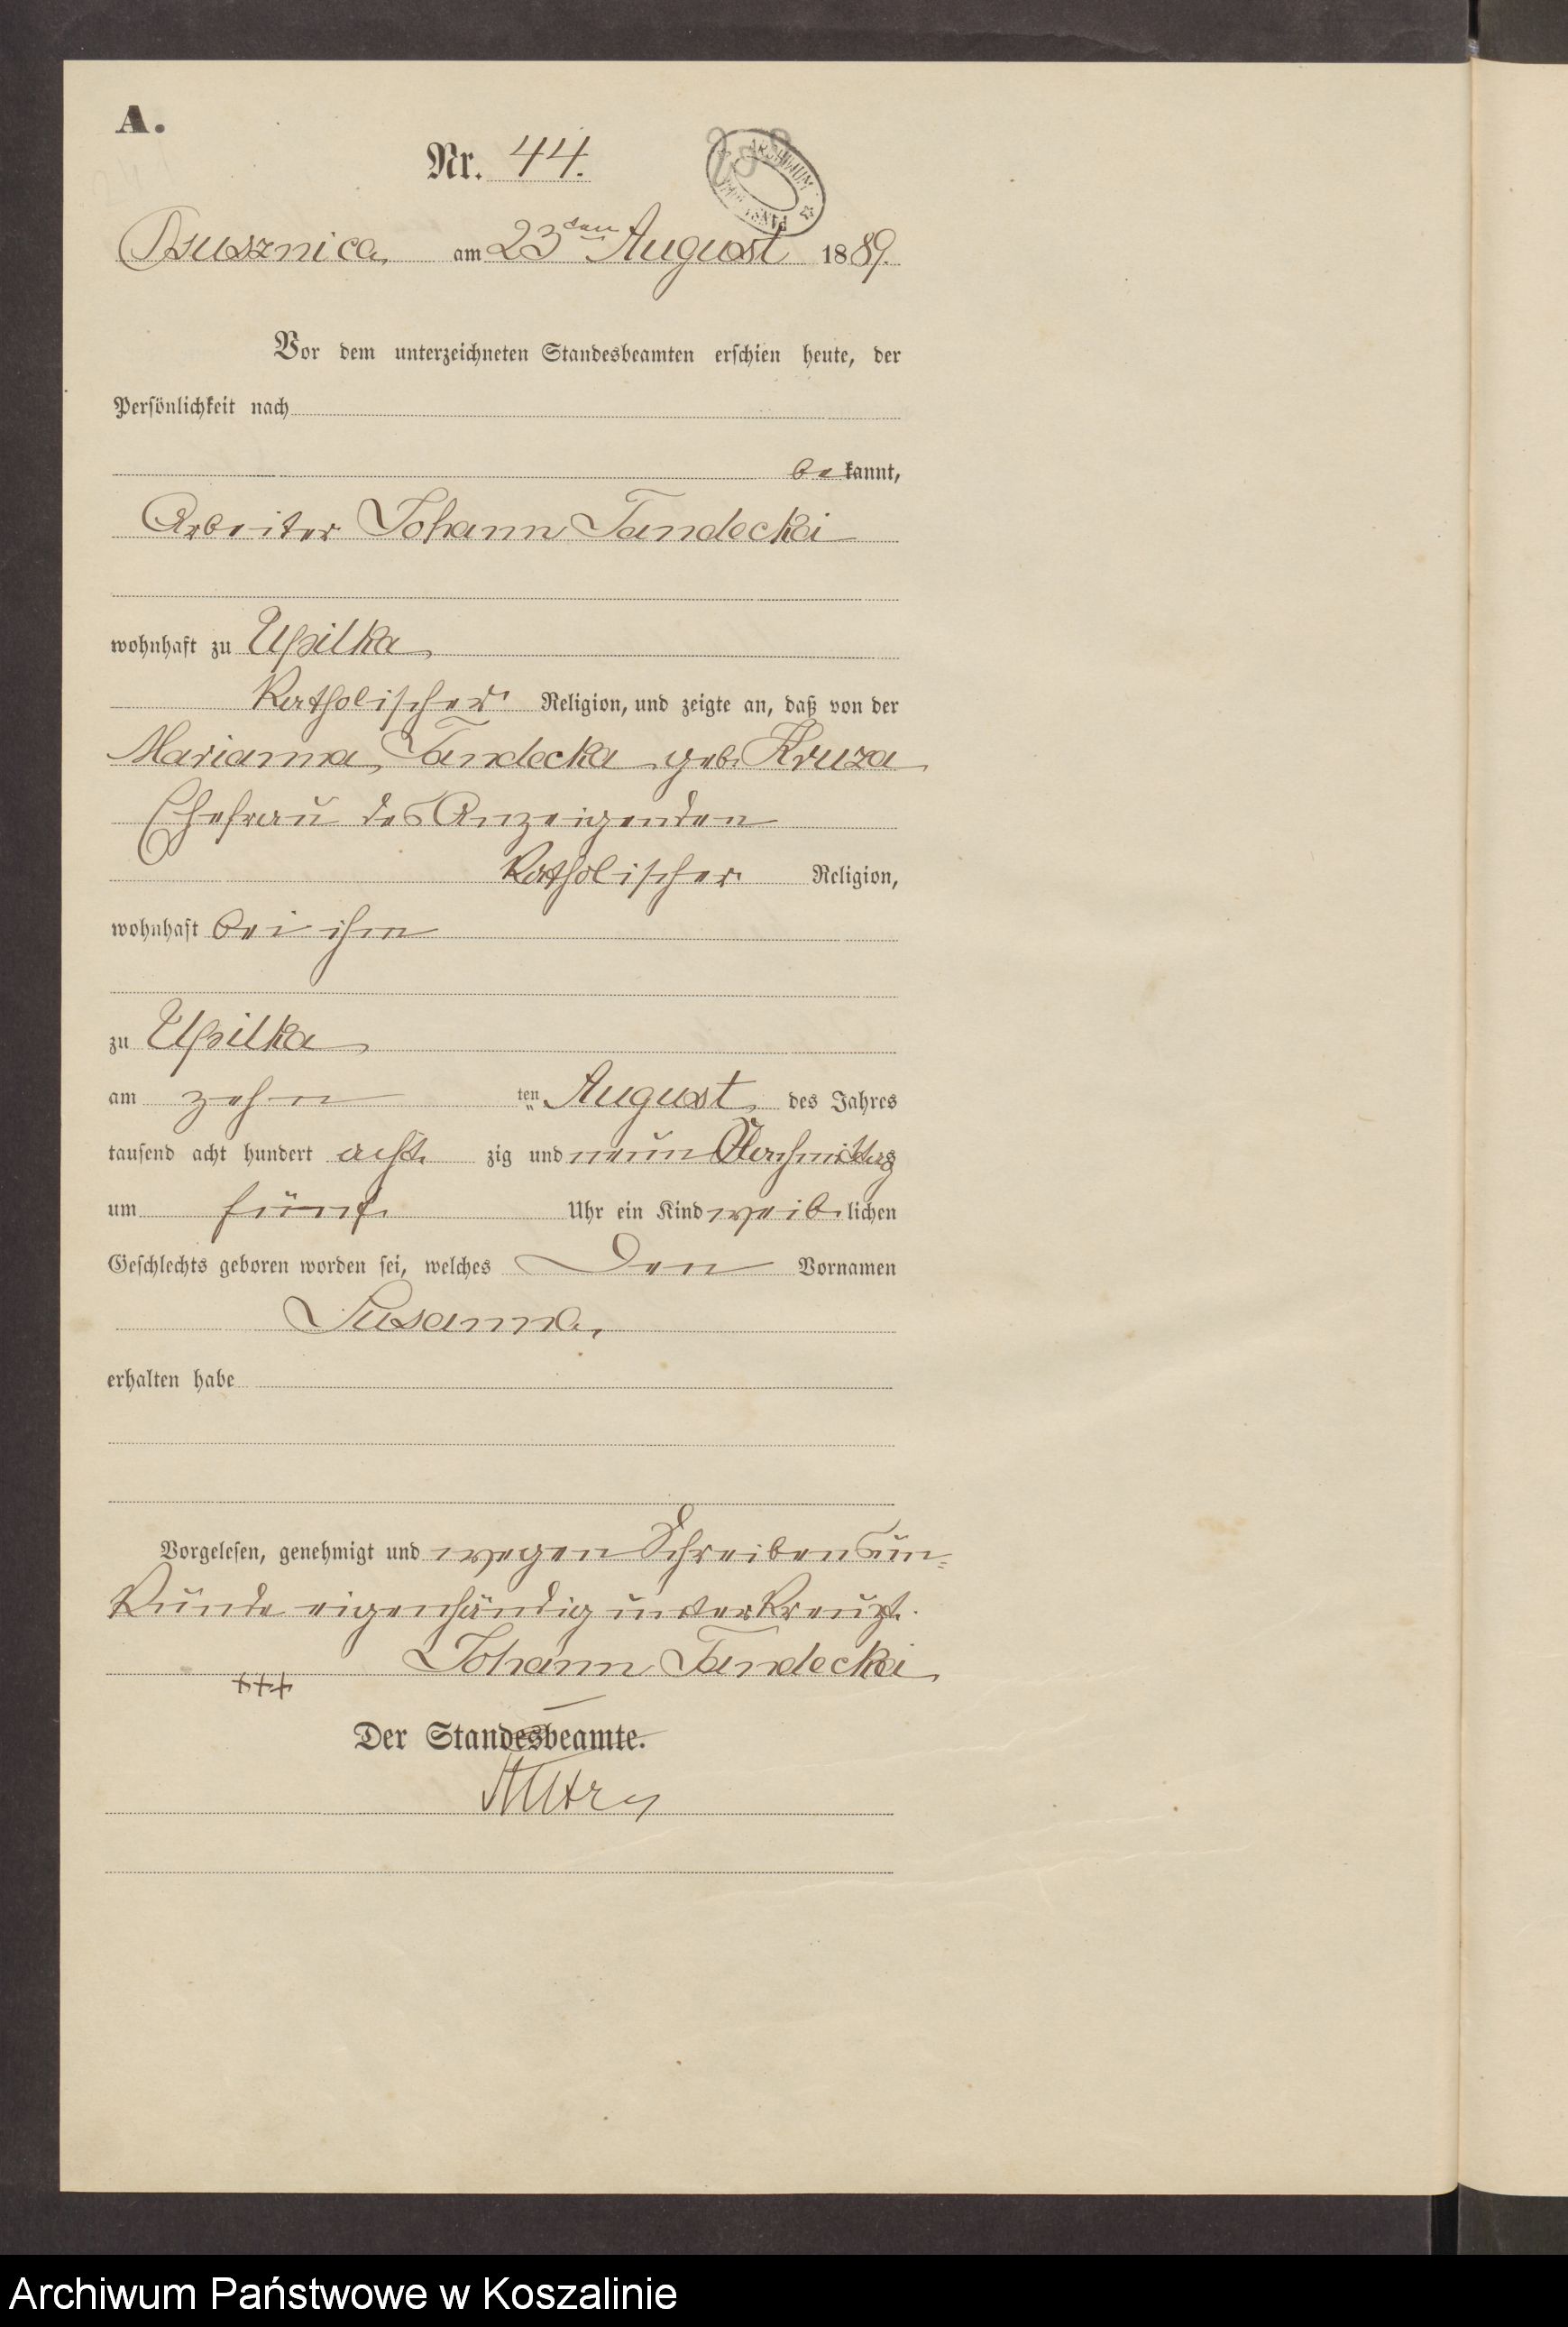 A.
Nr. 44.
ARCHIWUM
am 23ten August 1889.
Vor dem unterzeichneten Standesbeamten erschien heute, der
Persönlichkeit nach
be kannt,
Arbeiter Johann Tandecki
wohnhaft zu Upilka
Katholischer Religion, und zeigte an, daß von der
Marianna Tandecka geb. Kruza
Ehefrau des Anzeigenden
Katholischer Religion,
wohnhaft bei ihm
zu Upilka
am zehn ten August des Jahres
tausend acht hundert acht zig und neun Nachmittags
um fünf Uhr ein Kind weib lichen
Geschlechts geboren worden sei, welches den Vornamen
Susanna
erhalten habe
Vorgelesen, genehmigt und wegen Schreibensun-
kunde eigenhändig unterkreuzt.
Johann Tandecki
+++
Der Standesbeamte.
Archiwum Państwowe w Koszalinie